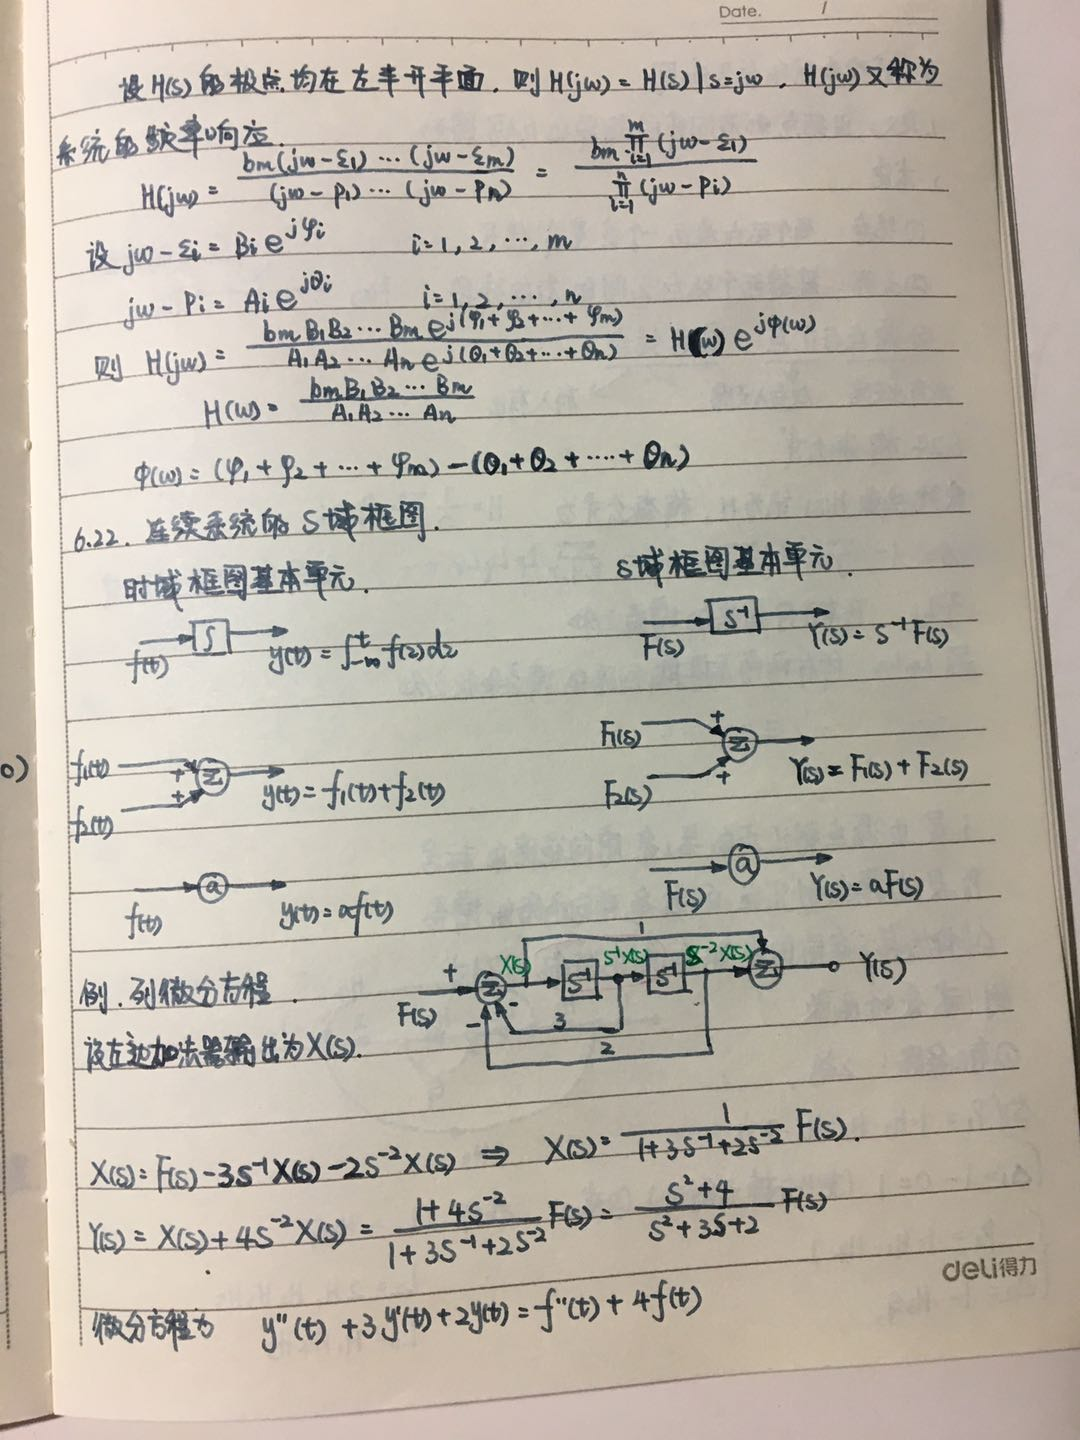 Date. /
设H(s)的极点均在左半开平面，则H(jω) = H(s)|s=jω，H(jω)又称为
系统的频率响应.
H(jω) = bm(jω-ξ1)…(jω-ξm) / (jω-p1)…(jω-pn) = bm ∏_{i=1}^{m}(jω-ξi) / ∏_{i=1}^{n}(jω-pi)
设 jω-ξi = Bi e^{jφi} i=1,2,…,m
jω-pi = Ai e^{jθi} i=1,2,…,n
则 H(jω) = bm B1B2…Bm e^{j(φ1+φ2+…+φm)} / A1A2…An e^{j(θ1+θ2+…+θn)} = H(ω) e^{jφ(ω)}
H(ω) = bm B1B2…Bm / A1A2…An
φ(ω) = (φ1+φ2+…+φm)-(θ1+θ2+…+θn)
6.22. 连续系统的S域框图.
时域框图基本单元. S域框图基本单元.
f(t) ∫ y(t) = ∫_{-∞}^{t} f(z)dz F(s) S⁻¹ Y(s) = S⁻¹F(s)
o)
f1(t) + Σ F1(s) + Σ
f2(t) + y(t) = f1(t)+f2(t) F2(s) + Y(s) = F1(s)+F2(s)
f(t) a y(t) = af(t) F(s) a Y(s) = aF(s)
1
例. 列微分方程. F(s) + Σ X(s) S⁻¹ S⁻¹X(s) S⁻¹ S⁻²X(s) Σ Y(s)
- - 3
设左边加法器输出为X(s). 2
X(s) = F(s)-3S⁻¹X(s)-2S⁻²X(s) ⇒ X(s) = 1 / (1+3S⁻¹+2S⁻²) F(s).
Y(s) = X(s)+4S⁻²X(s) = (1+4S⁻²) / (1+3S⁻¹+2S⁻²) F(s) = (S²+4) / (S²+3S+2) F(s)
deli得力
微分方程为 y''(t)+3y'(t)+2y(t) = f''(t)+4f(t)